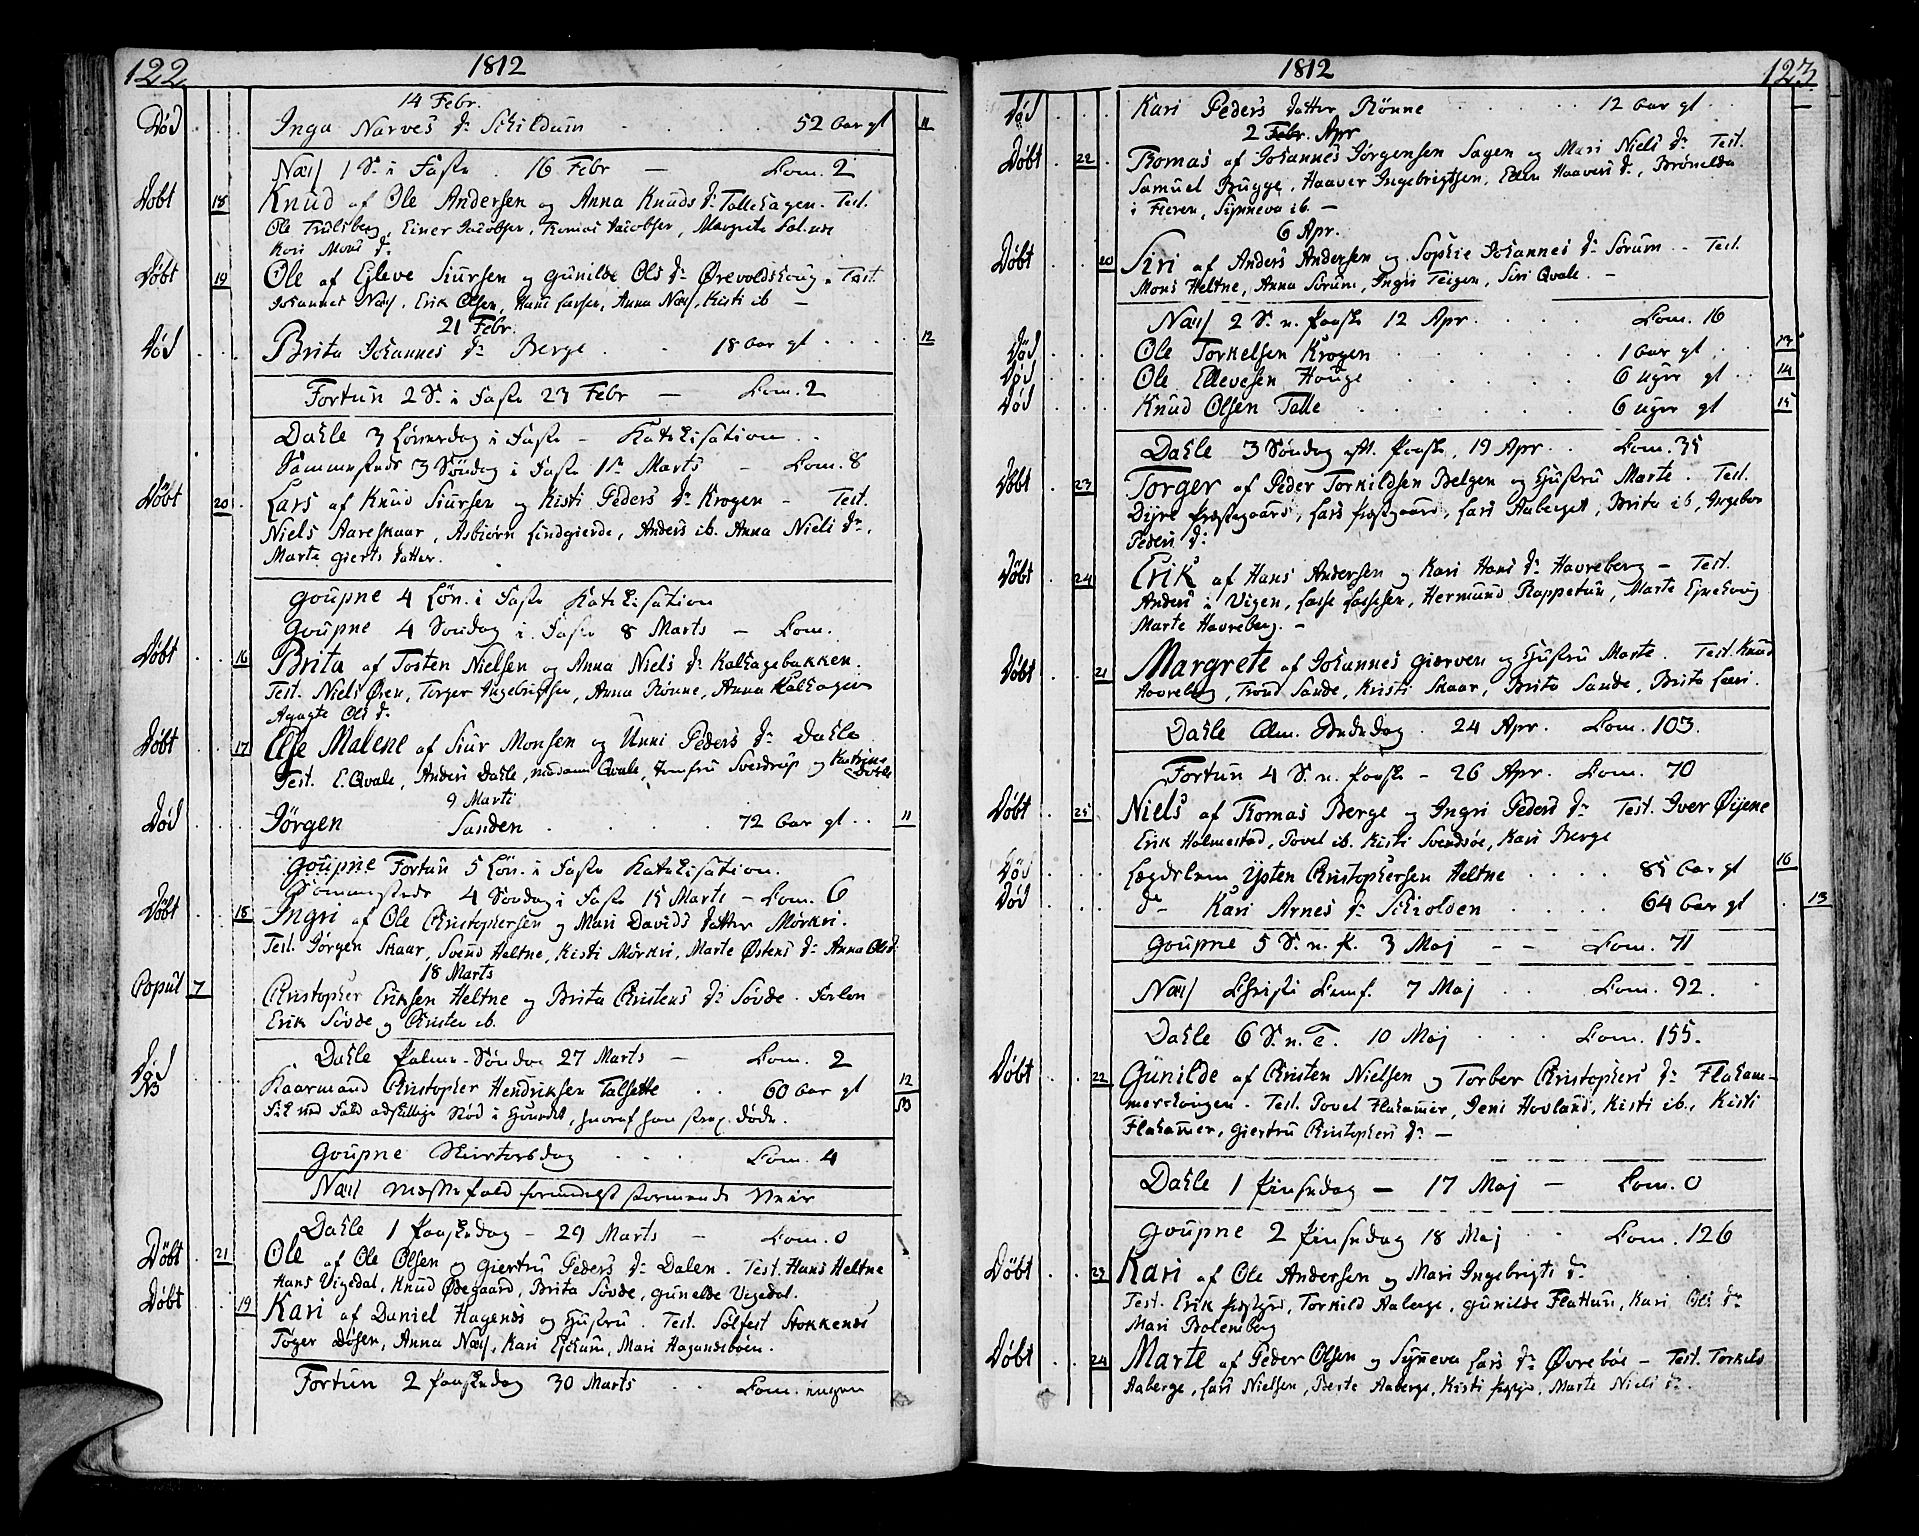 122 1812
14 Febr.
Død Inga Narves Dr Schildum 52 Aar gl 11
Næss 1 S. i Faste 16 Febr Com. 2
Døbt 18 Knud af Ole Andersen og Anna Knuds Dr Tallehagen. Test.
Ole Einer Jacobsen, Tomas Jacobsen, Margrete
Kari Mons Dr
Døbt 19 Ole af Ejleve Siursen og Gunilde Ols Dr Test.
Johannes Næss, Erik Olsen, Hans Larsen, Anna Næss, Kisti ib
21 Febr.
Død Brita Johannes Dr Berge 18 Aar gl 12
Fortun 2 S. i Faste 23 Febr Com. 2
Dahle 3 Löverdag i Faste - Katekisation
Sammesteds 3 Söndag i Faste 1ste Marts Com. 8
Døbt 20 Lars af Knud Siursen og Kisti Peders Dr Krogen - Test.
Niels Aareskaar, Asbiørn Lindgierde, Anders ib. Anna Niels Dr,
Marte Gierts Datter.
Goupne 4 Løv. i Faste Katekisation
Goupne 4 Søndag i Faste 8 Marts - Com.
Døbt 16 Brita af Tosten Nielsen og Anna Niels Dr Kalhagebakken.
Test. Niels Øren, Torger Ingebrigtsen, Anna Rönne, Anna Kalhagen
Agagte Ols Dr
Døbt 17 Else Malene af Siur Monsen og Unni Peders Dr Dahle
Test. E. Qvale, Anders Dahle, Madame Qvale, Jomfru Sverdrup og
9 Marts
Død Jörgen Sanden 72 Aar gl 11
Goupne Fortun 5 Løv. i Faste Katekisation.
Sammesteds 4 Søndag i Faste 15 Marts - Com. 6
Døbt 18 Ingri af Ole Christophersen og Mari Davids Datter Mörkri.
Test. Jörgen Skaar, Svend Heltne, Kisti Mörkri, Marte Østens Dr Anna Ols D.
18 Marts
Copul 7 Christopher Eriksen Heltne og Brita Christens Dr Søvde. Forlov
Erik Søvde og Christen ib.
Dahle Palme-Søndag 27 Marts - Com. 2
Død Kaarmand Christopher Hendriksen Talsette 60 Aar gl 12
NB NB
Goupne Skiertorsdag Com. 4
Næss Messefald formedelst stormende Veir
Dahle 1 Paaskedag - 29 Marts - Com. 0
Døbt 21 Ole af Ole Olsen og Giertru Peders Dr Dalen. Test. Hans Heltne
Hans Vigedal, Knud Ødegaard, Brita Søvde, Gunelde Vigedal.
Døbt 19 Kari af Daniel Hagenæs og Hustru. Test. Sølfest Stokkenæs
Töger Døsen, Anna Næss, Kari Ejkum, Mari Hagenæsbøen.
Fortun 2 Paaskedag 30 Marts Com. ingen
1812 123
Død Kari Peders Datter Rönne 12 Aar gl
2 Febr. Apr
Døbt 22 Tomas af Johannes Jörgensen Sagen og Mari Niels Dr Test.
Samuel Bugge, Haaver Ingebrigtsen, Elen Haavers Dr,
i Fieren, Synneva ib. -
6 Apr.
Døbt 20 Siri af Anders Andersen og Sophie Johannes Dr Sørum - Test.
Mons Heltne, Anna Sørum, Ingri Teigen, Siri Qvale. -
Næss 2 S. n. Paaske 12 Apr. Com. 16
Død Ole Torkelsen Krogen 1 Aar gl 13
Død Ole Ellevesen Houge 6 Uger gl 14
Død Knud Olsen Talle 6 Uger gl 15
Dahle 3 Søndag eft. Paaske, 19 Apr Com. 35
Døbt 23 Torger af Peder Torkildsen Bolgen og Hustru Marte. Test.
Dyre Præstegaard, Lars Præstegaard, Lars Aaberget, Brita ib, Angebor
Peders Dr
Døbt 24 Erik af Hans Andersen og Kari Hans Dr Havreberg - Test.
Anders i Vigen, Lasse Lassesen, Hermund Rappetun, Marte
Marte Havreberg. -
Døbt 21 Margrete af Johannes Gierven og Hustru Marte. Test. Knud
Havreberg, Trond Sande, Kristi Skaar, Brita Sande, Brita
Dahle Alm. Bededag 24 Apr. Com. 103
Fortun 4 S. n. Paaske - 26 Apr. Com. 70
Døbt 25 Niels af Tomas Berge og Ingri Peders Dr Test. Iver Øijene
Erik Holmestad, Povel ib. Kisti Svendsøe, Kari Berge
Død Lægdslem Ysten Christophersen Heltne 85 Aar gl 16
Død Dr Kari Arnes Dr Schiolden 64 Aar gl 13
Goupne 5 S. n. P. 3 Maj - - Com. 71
Næss Christi Himf. 7 Maj Com. 92.
Dahle 6 S. n. P. 10 Maj Com. 155.
Døbt 22 Gunilde af Christen Nielsen og Torber Christophers Dr Flaham-
merhougen. Test. Povel Flahamer, Jens Hovland, Kisti ib., Kisti
Flahamer, Giertru Christophers Dr -
Dahle 1 Pinsedag - 17 Maj - Com. 0
Goupne 2 Pinsedag 18 Maj Com. 126
Døbt 23 Kari af Ole Andersen og Mari Ingebrigts Dr
Test. Erik Torkild Aaberge, Gunilde Flattun, Kari Ols Dr
Mari Bolensberg
Døbt 24 Marte af Peder Olsen og Synneva Lars Dr Øvrebøe - Test. Torkild
Aaberge, Lars Nielsen, Berte Aaberge, Kisti Marte Niels Dr.